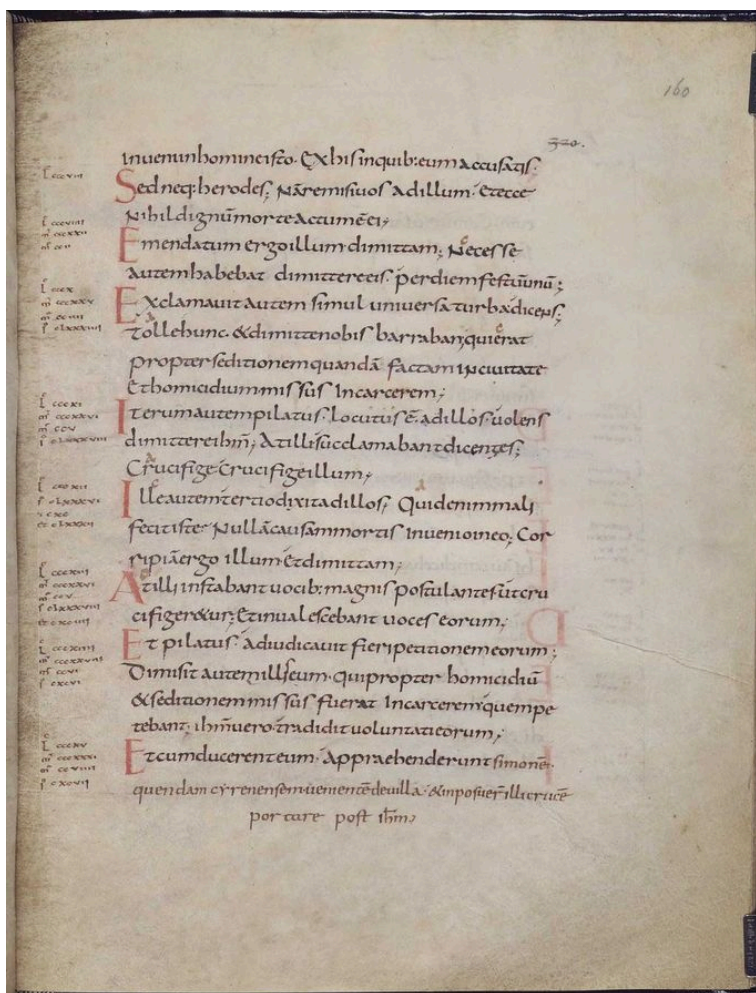 160
320.
inuenio in homine isto. Ex his in quib: eum accusatis.
Sed neq: herodes; Nã remisi uos ad illum. Et ecce
Nihil dignũ morte actum ẽ ei;
Emendatum ergo illum dimittam; Necesse
autem habebat dimittere eis per diem festũ unũ;
Exclamauit autem simul uniuersa turba dicens;
Tolle hunc. & dimitte nobis barraban; qui erat
propter seditionem quandã factam in ciuitate
Et homicidium missus in carcerem;
Iterum autem pilatus locutus ẽ ad illos uolens
dimittere ihm̃; At illi succlamabant dicentes;
Crucifige Crucifige illum;
Ille autem tertio dixit ad illos; Quid enim mali
fecit iste. Nullã causam mortis inuenio in eo; Cor
ripiã ergo illum et dimittam;
At illi instabant uocib: magnis postulantes ut cru
cifiger&ur; Et inualescebant uoces eorum;
Et pilatus adiudicauit fieri petitionem eorum;
Dimisit autem illis eum qui propter homicidiũ
& seditionem missus fuerat in carcerem quem pe
tebant; ihm̃ uero tradidit uoluntati eorum;
Et cum ducerent eum. Appraehenderunt simonẽ
quendam cyrenensem uenientẽ de uilla. & inposuer̃ illi crucẽ
portare post ihm̃;